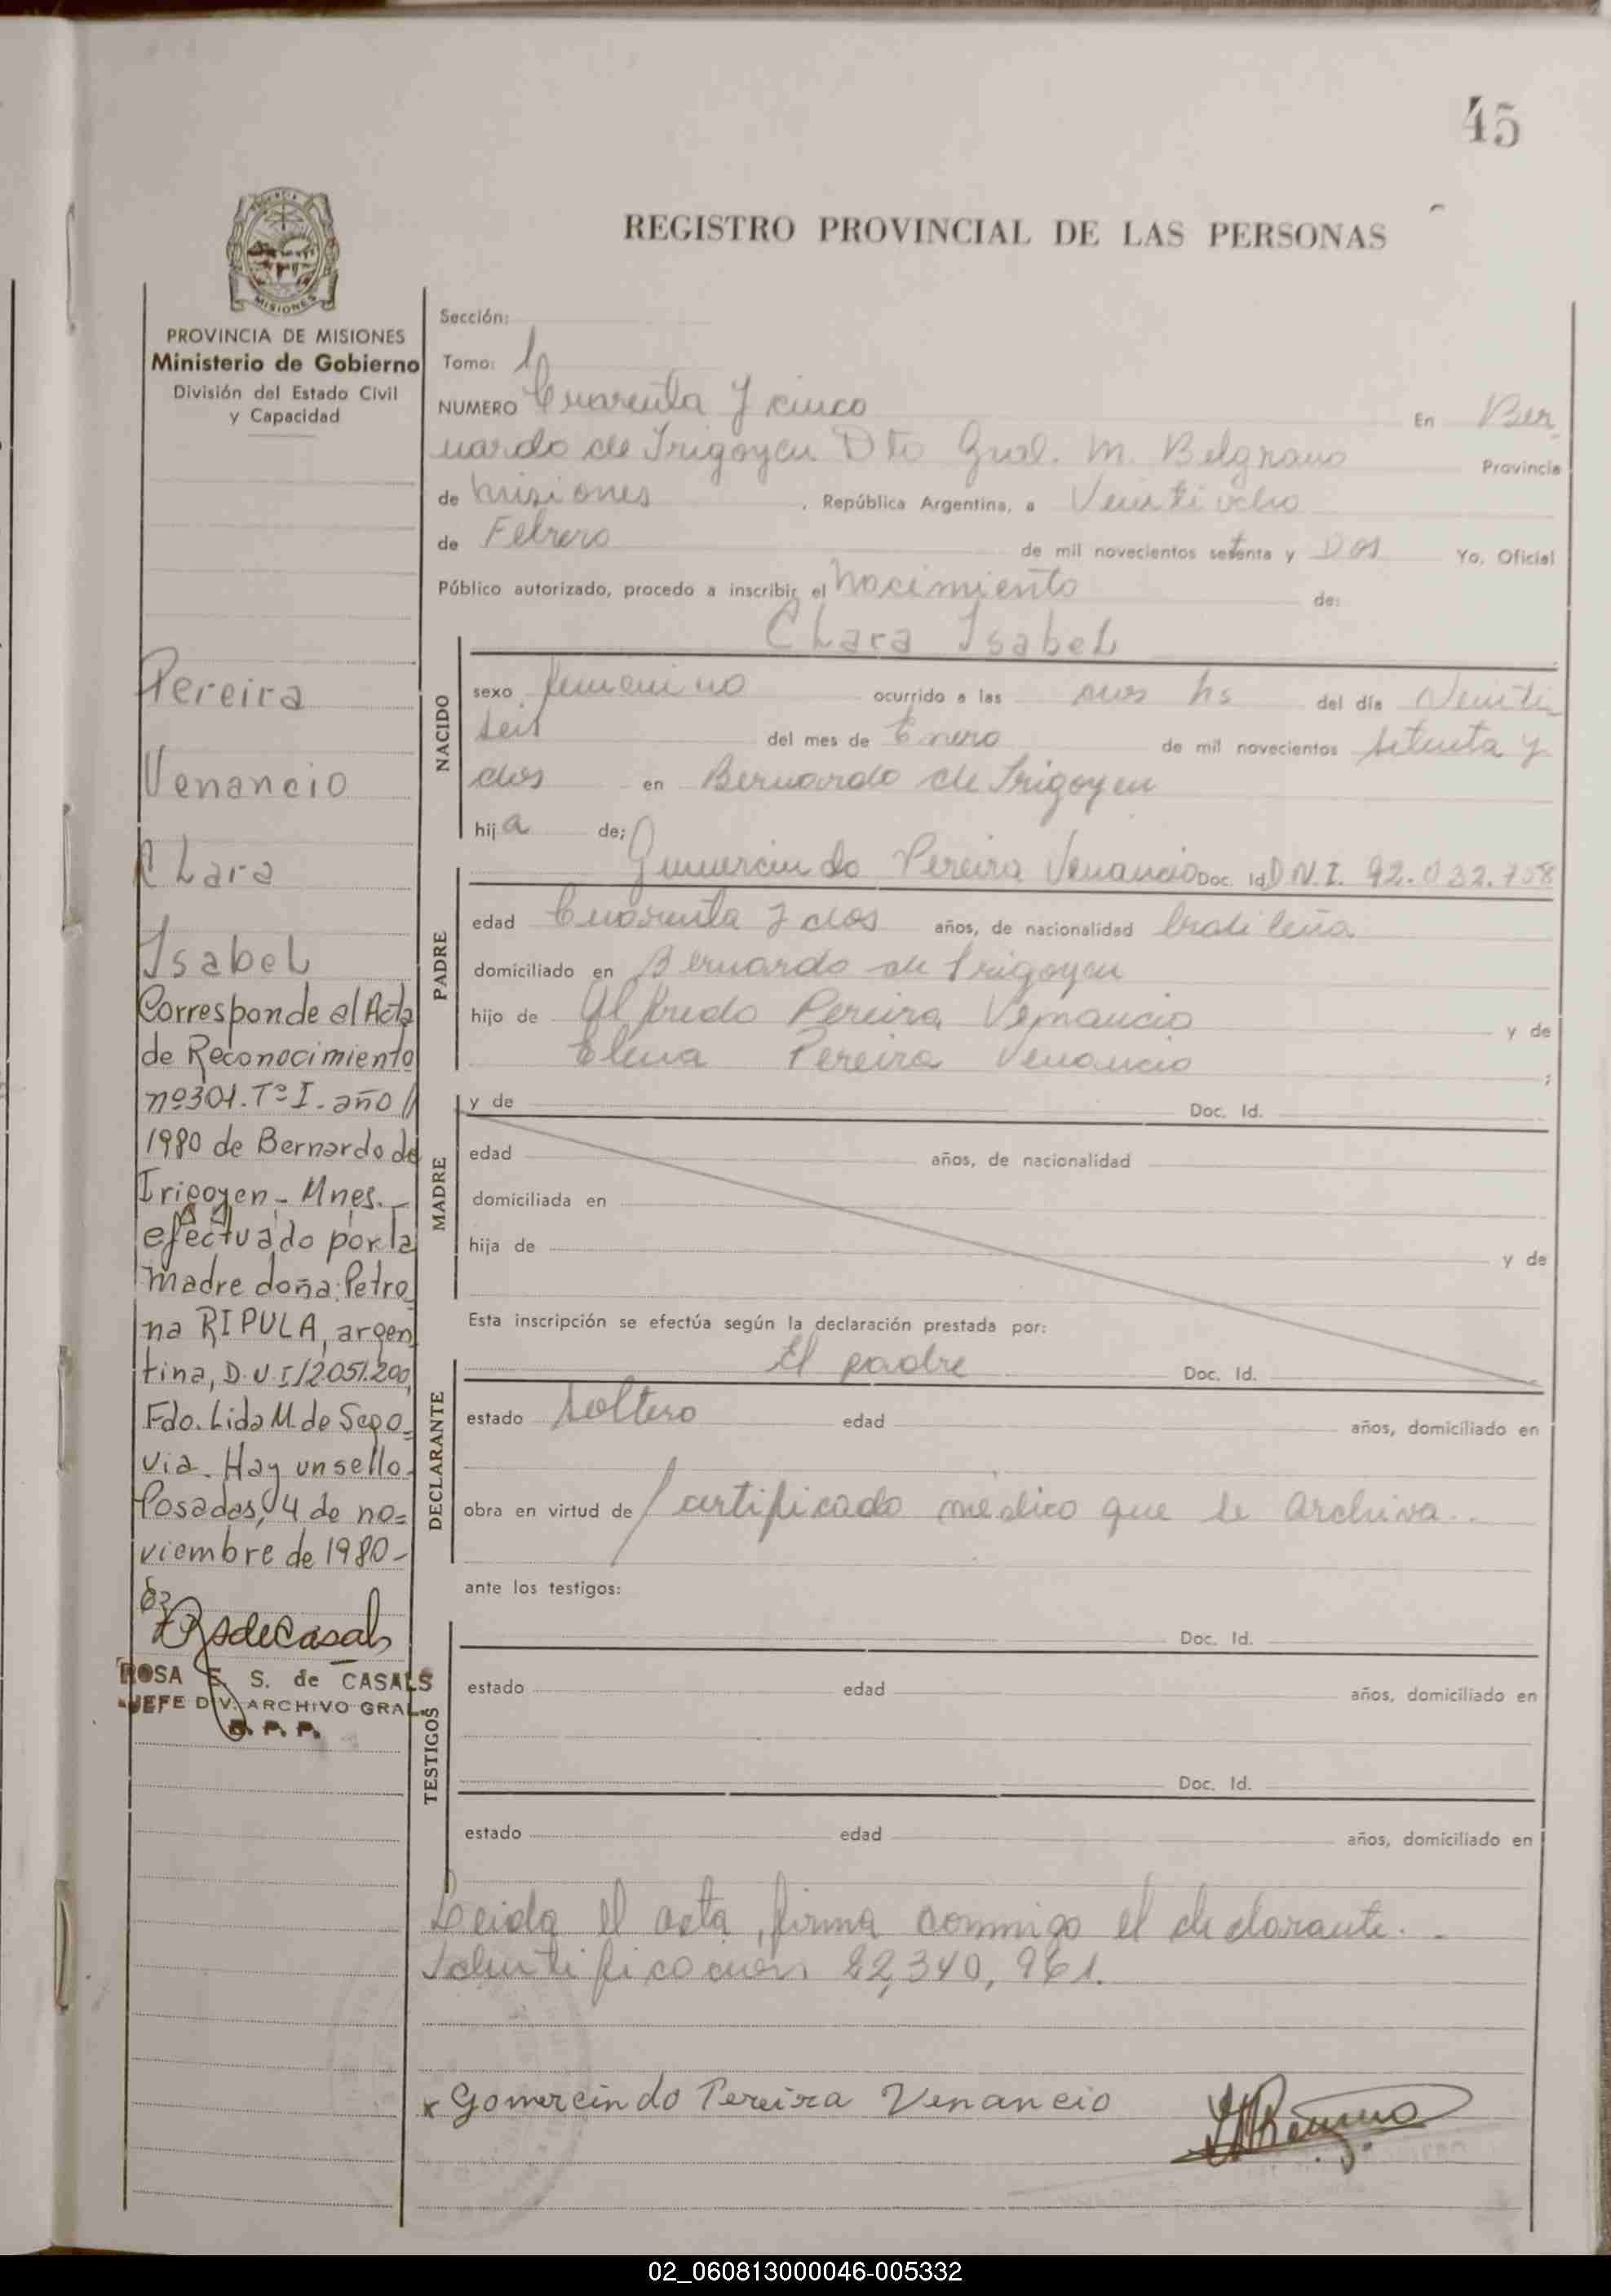 45
REGISTRO PROVINCIAL DE LAS PERSONAS
MISIONES
PROVINCIA DE MISIONES
Ministerio de Gobierno
División del Estado Civil
y Capacidad
Pereira
Venancio
Clara
Isabel
Corresponde al Acta
de Reconocimiento
nº301. Tº I. año //
1980 de Bernardo de
Irigoyen - Mnes. -
efectuado por la
madre doña: Petro
na RIPULA, argen
tina, D.U.I
Fdo. Lida M. de Sego=
via. Hay un sello.
Posadas, 4 de no=
viembre de 1980-
ROSA E. S. de CASALS
JEFE DIV. ARCHIVO GRAL.
Sección:
Tomo: 1
NUMERO Cuarenta y cinco En Ber
nardo de Irigoyen Dto Gral. M. Belgrano Provincia
de Misiones , República Argentina, a Veintiocho
de Febrero de mil novecientos setenta y Dos Yo, Oficial
Público autorizado, procedo a inscribir el Nacimiento de:
Clara Isabel
NACIDO
sexo femenino ocurrido a las hs del día Veinti
seis del mes de Enero de mil novecientos setenta y
dos en Bernardo de Irigoyen
hija de:
PADRE
Gumercindo Pereira Venancio Doc. Id D.N.I. 92.032.758
edad Cuarenta y dos años, de nacionalidad brasileña
domiciliado en Bernardo de Irigoyen
hijo de Alfredo Pereira Venancio y de
Elena Pereira Venancio ;
MADRE
y de Doc. Id.
edad años, de nacionalidad
domiciliada en
hija de y de
Esta inscripción se efectúa según la declaración prestada por:
DECLARANTE
El padre Doc. Id.
estado soltero edad años, domiciliado en
obra en virtud de Certificado médico que se archiva..
ante los testigos:
TESTIGOS
Doc. Id.
estado edad años, domiciliado en
Doc. Id.
estado edad años, domiciliado en
Leida el acta, firma conmigo el declarante. -
Identificación 22,340,961.
x Gomercindo Pereira Venancio
02_060813000046-005332